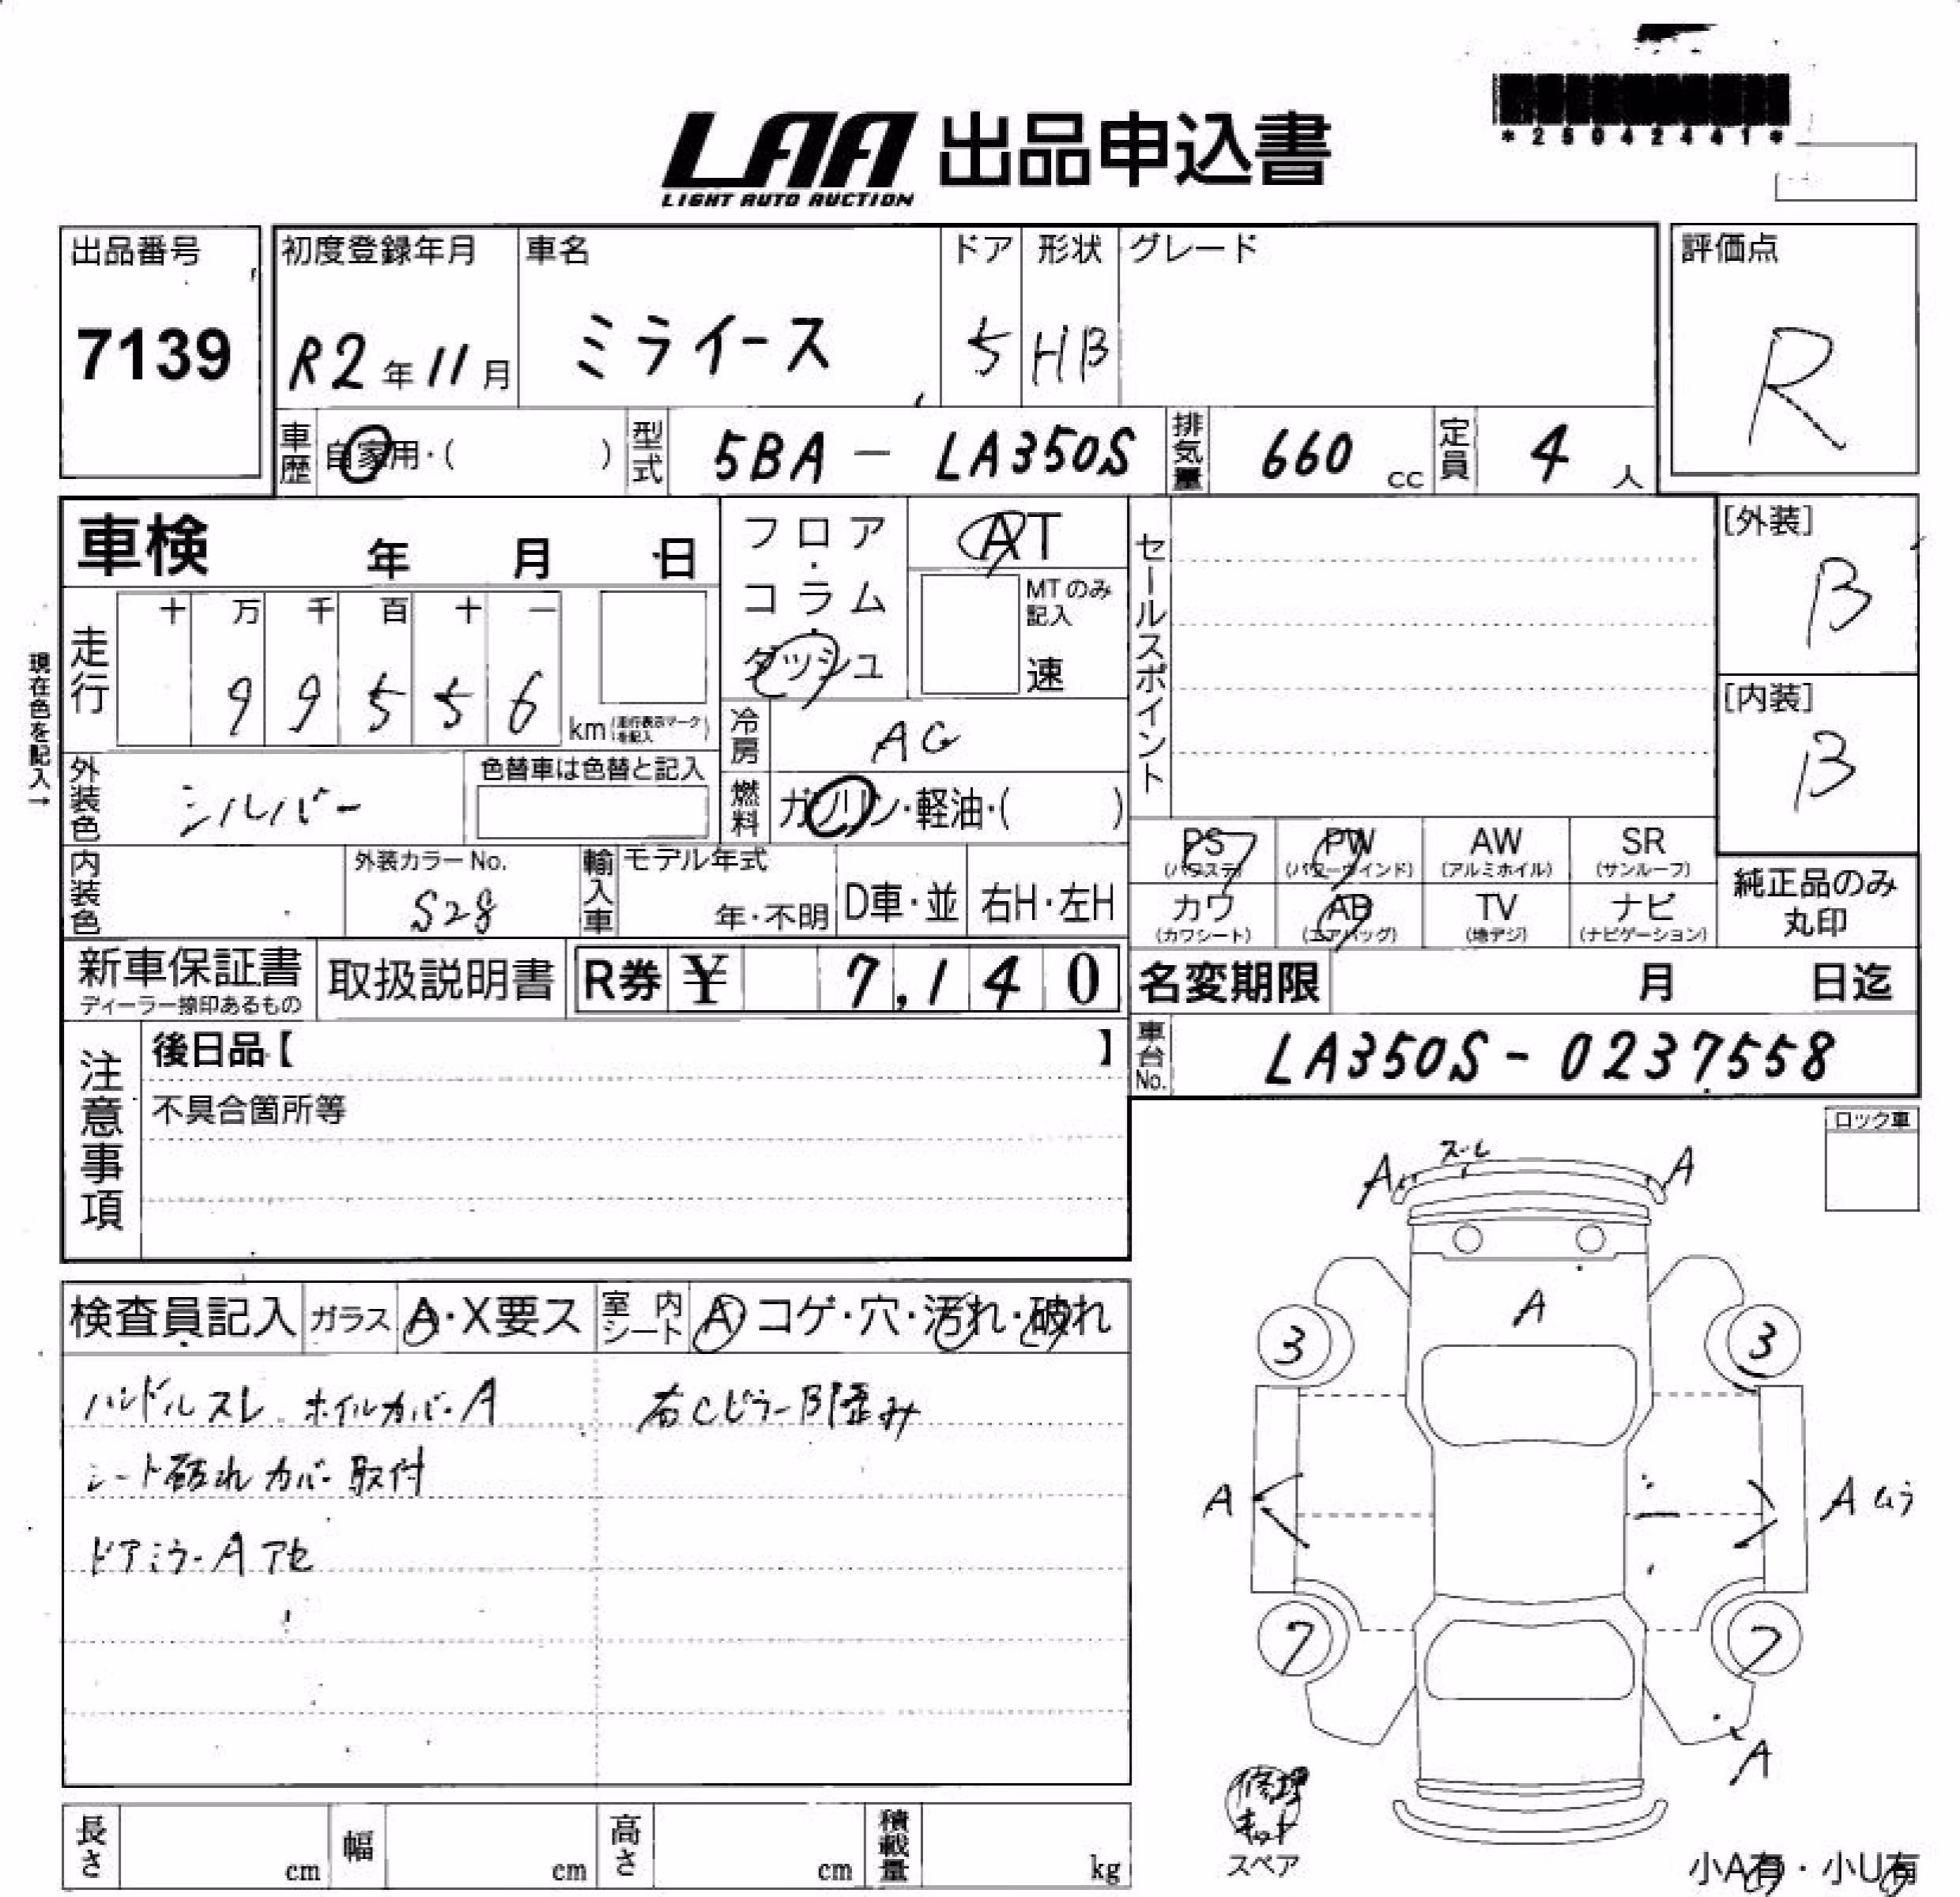 *25042441*
LAA 出品申込書
LIGHT AUTO AUCTION
出品番号
7139
初度登録年月
R2年11月
車名
ミライース
ドア
5
形状
HB
グレード
評価点
R
車歴
自家用・( )
型式
5BA - LA350S
排気量
660 cc
定員
4 人
車検 年 月 日
フロア・コラム・ダッシュ
AT
MTのみ記入
速
セールスポイント
[外装]
B
[内装]
B
現在色を記入→
走行
十 万 千 百 十 一
9 9 5 5 6
km(走行表示マークを記入)
冷房
AC
燃料
ガソリン・軽油・( )
外装色
シルバー
色替車は色替と記入
内装色
外装カラーNo.
S28
輸入車
モデル年式
年・不明
D車・並
右H・左H
PS
(パワステ)
PW
(パワーウインド)
AW
(アルミホイル)
SR
(サンルーフ)
カワ
(カワシート)
AB
(エアバッグ)
TV
(地デジ)
ナビ
(ナビゲーション)
純正品のみ
丸印
新車保証書
ディーラー捺印あるもの
取扱説明書
R券 ¥ 7,140
名変期限 月 日迄
車台No.
LA350S-0237558
注意事項
後日品【 】
不具合箇所等
ロック車
検査員記入
ガラス
A・X要ス
室内シート
A コゲ・穴・汚れ・破れ
ハンドルスレ ホイルカバーA
右CピラーB歪み
シート破れカバー取付
ドアミラーAアセ
A スレ A
A
3 3
A A ムラ
7 7
A
修理キット
スペア
小A有・小U有
長さ cm
幅 cm
高さ cm
積載量 kg